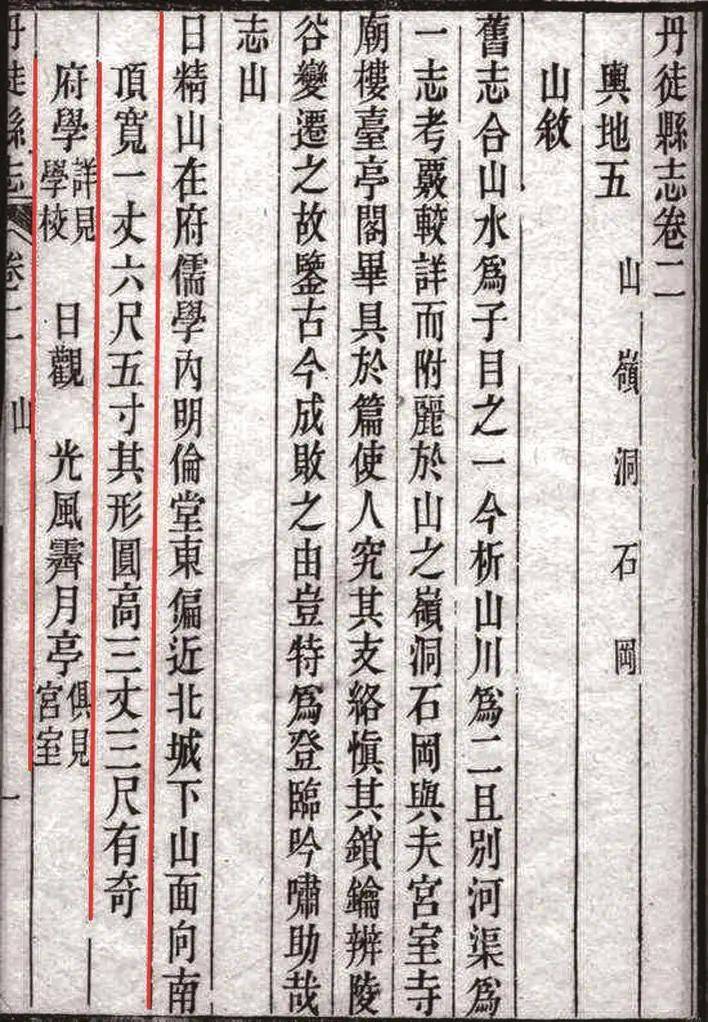 丹徒縣志卷二
輿地五 山 嶺 洞 石 岡
山敘
舊志合山水爲子目之一今析山川爲二且別河渠爲
一志考覈較詳而附麗於山之嶺洞石岡與夫宮室寺
廟樓臺亭閣畢具於篇使人究其支絡愼其鎖鑰辨陵
谷變遷之故鑒古今成敗之由豈特爲登臨吟嘯助哉
志山
日精山在府儒學內明倫堂東偏近北城下山面向南
頂寬一丈六尺五寸其形圓高三丈三尺有奇
府學詳見學校 日觀 光風霽月亭俱見宮室
丹徒縣志 卷二 山 一